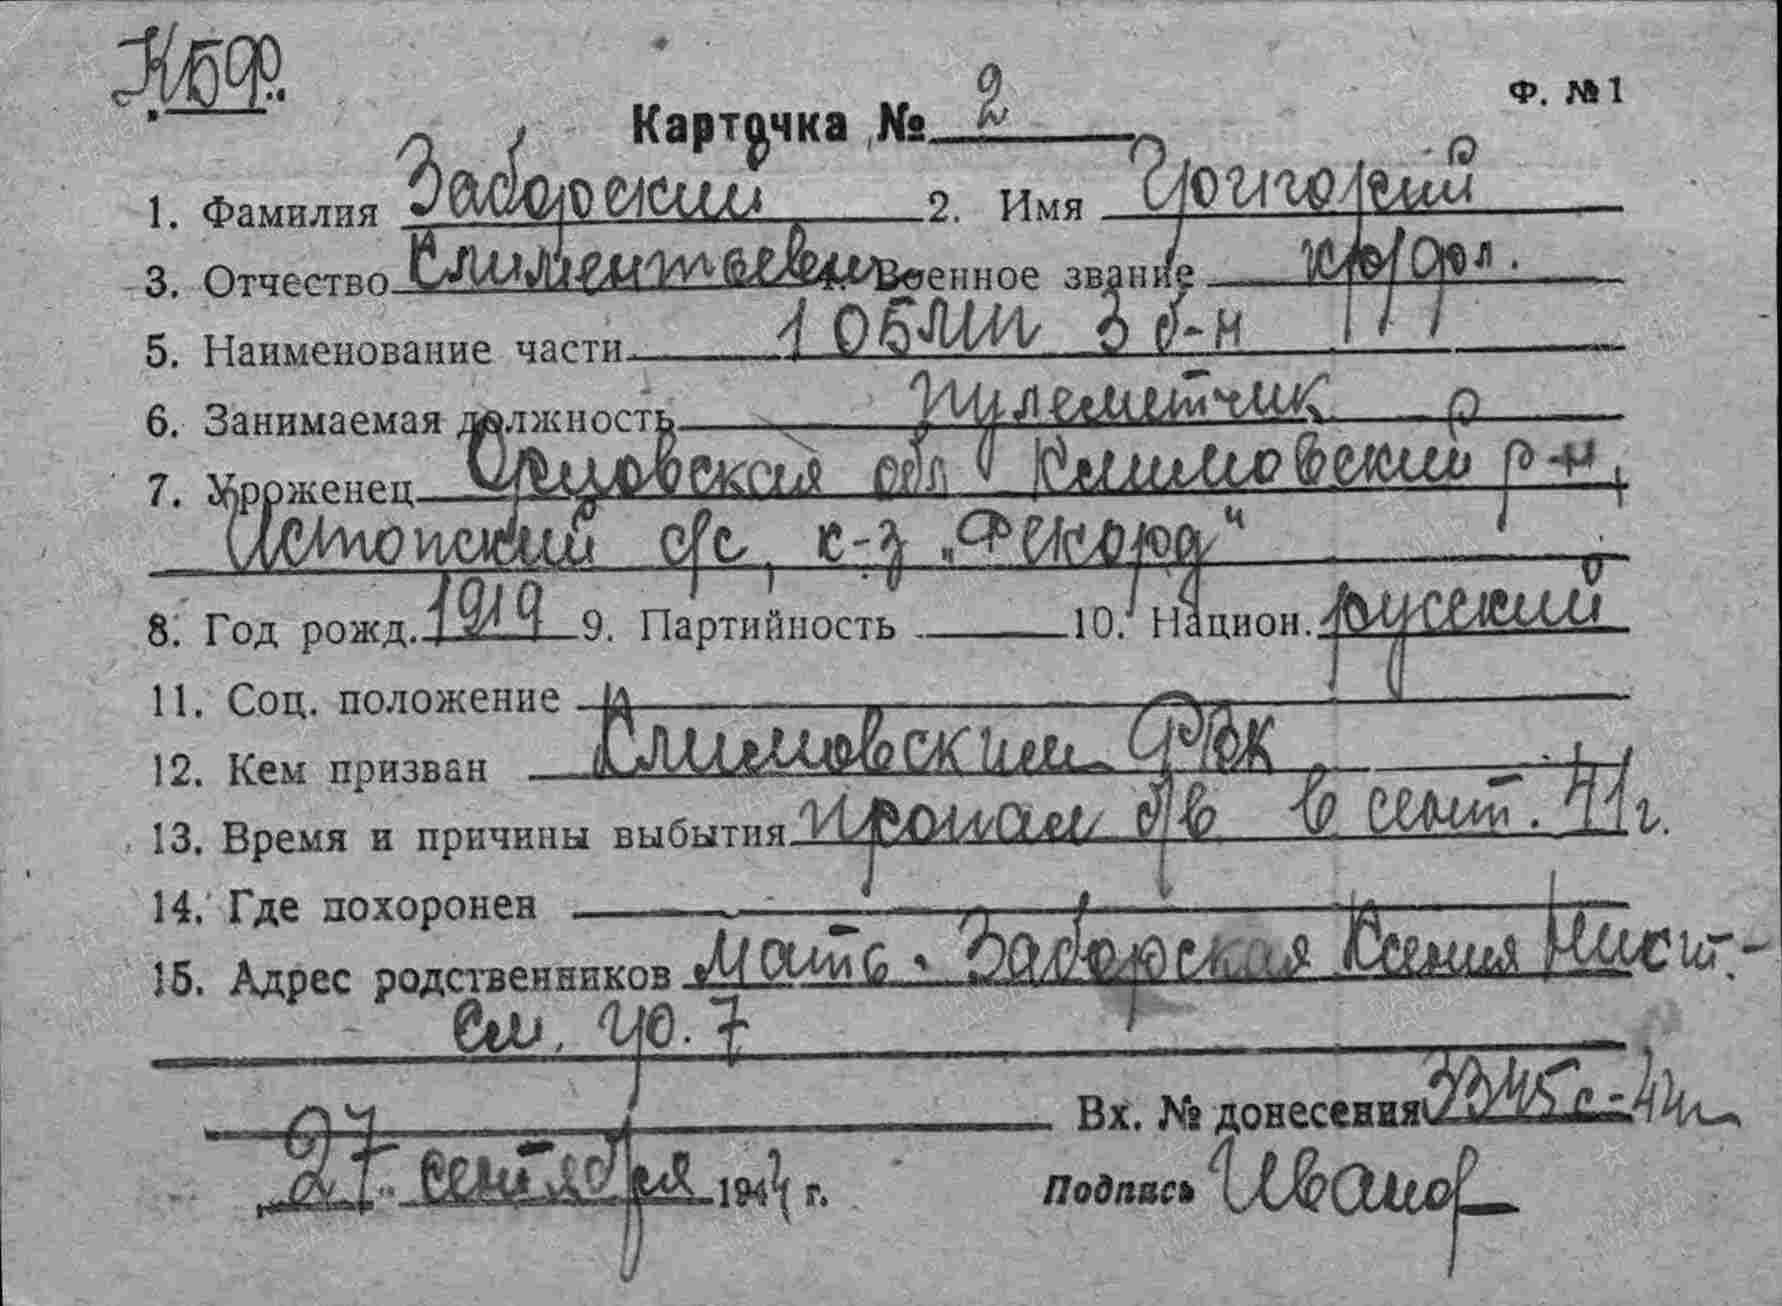 КБФ.
Ф. №1
Карточка № 2
1. Фамилия Заборский 2. Имя Григорий
3. Отчество Климентьевич 4. Военное звание кр/фл.
5. Наименование части 1 ОБМП 3 б-н
6. Занимаемая должность пулеметчик
7. Уроженец Орловская обл Климовский р-н,
Истопский с/с, к-з „Рекорд“
8. Год рожд. 1919 9. Партийность 10. Национ. русский
11. Соц. положение
12. Кем призван Климовским РВК
13. Время и причины выбытия пропал б/в в сент. 41 г.
14. Где похоронен
15. Адрес родственников мать - Заборская Ксения Никит. -
см. гр. 7
Вх. № донесения 3345с-42
27 сентября 1944 г. Подпись Иванов